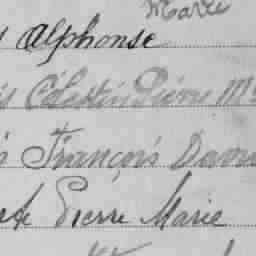 Marie
Alphonse
Célestin Pierre M
François
Pierre Marie